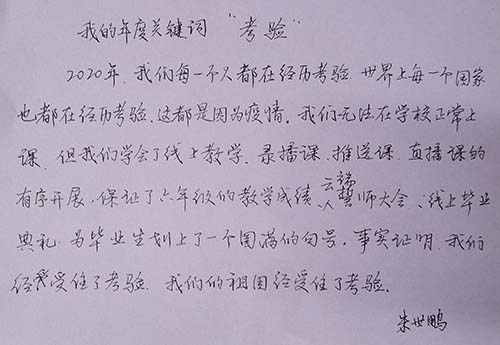 我的年度关键词 "考验"
2020年,我们每一个人都在经历考验.世界上每一个国家
也都在经历考验.这都是因为疫情.我们无法在学校正常上
课.但我们学会了线上教学.录播课.推送课.直播课的
有序开展,保证了六年级的教学成绩、云端誓师大会、线上毕业
典礼.为毕业生划上了一个圆满的句号,事实证明.我们
经受住了考验.我们的祖国经受住了考验.
朱世鹏